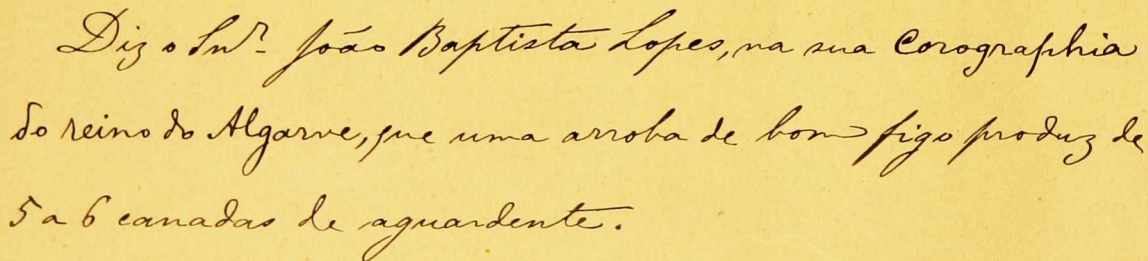 Diz o Snr. João Baptista Lopes, na sua Corographia
do reino do Algarve, que uma arroba de bom figo produz de
5 a 6 canadas de aguardente.